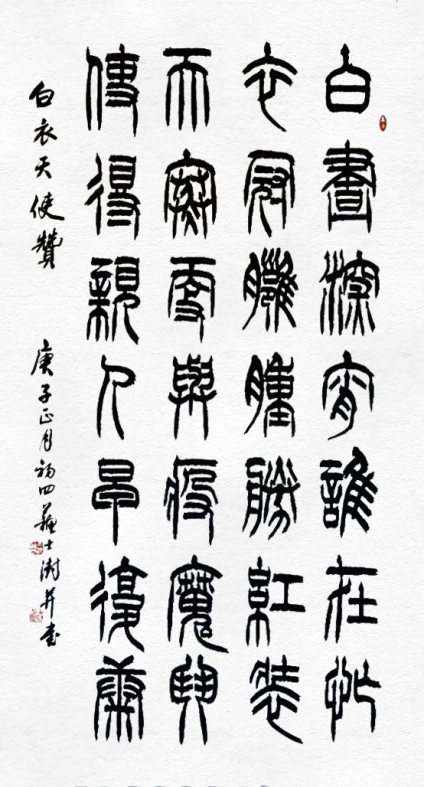 白晝深宵誰在忙
衣冠臃腫勝紅裝
天寒與疫魔
使得親人早復康
白衣天使贊 庚子正月初四蘇士澍并書